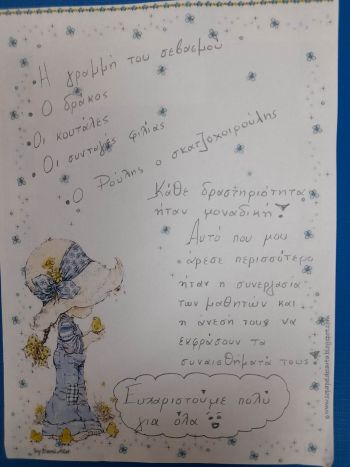 • Η γραμμή του σεβασμού
• Ο δράκος
• Οι κουτάλες
• Οι συνταγές φιλίας
• Ο Ρούλης ο σκατζοχοιρούλης
Κάθε δραστηριότητα
ήταν μοναδική!
Αυτό που μου
άρεσε περισσότερο
ήταν η συνεργασία
των μαθητών και
η άνεσή τους να
εκφράσουν τα
συναισθήματά τους!
Ευχαριστούμε πολύ
για όλα